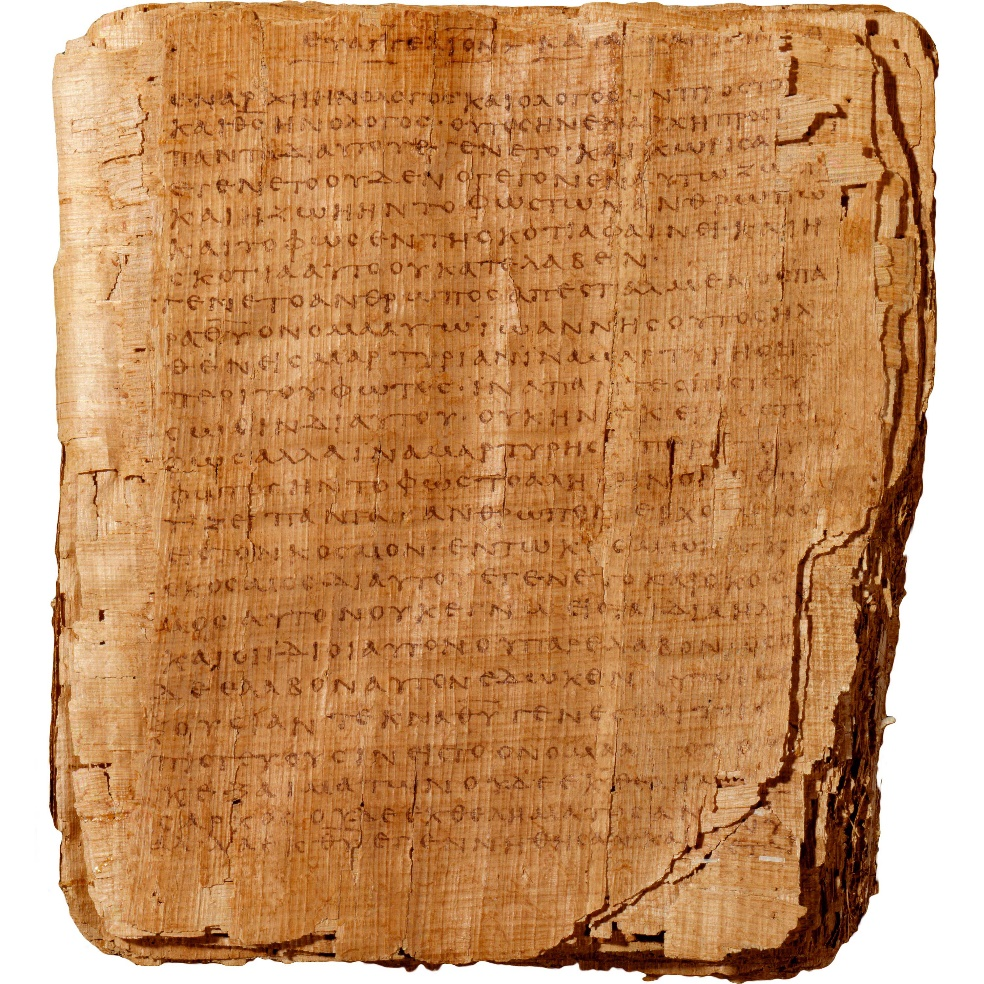 ΕΥΑΓΓΕΛΙΟΝ ΚΑΤΑ
ΕΝΑΡΧΗΗΝΟΛΟΓΟΣ ΚΑΙΟΛΟΓΟΣΗΝΠΡΟΣΤΟ
ΚΑΙΘΣΗΝΟΛΟΓΟΣ·ΟΥΤΟΣΗΝΕΝΑΡΧΗΠΡΟΣΤ
ΠΑΝΤΑΔΙΑΥΤΟΥΕΓΕΝΕΤΟ·ΚΑΙΧΩΡΙΣΑ
ΕΓΕΝΕΤΟΟΥΔΕΝΟΓΕΓΟΝΕΝΑΥΤΩΖΩ
ΚΑΙΗΖΩΗΗΝΤΟΦΩΣΤΩΝΑΝΘΡΩΠΩ
ΚΑΙΤΟΦΩΣΕΝΤΗΣΚΟΤΙΑΦΑΙΝΕΙ·ΚΑΙΗ
ΣΚΟΤΙΑΑΥΤΟΟΥΚΑΤΕΛΑΒΕΝ·
ΓΕΝΕΤΟΑΝΘΡΩΠΟΣΑΠΕΣΤΑΛΜΕΝΟΣΠΑ
ΡΑΘΥΟΝΟΜΑΑΥΤΩΙΩΑΝΝΗΣΟΥΤΟΣΗΛ
ΘΕΝΕΙΣΜΑΡΤΥΡΙΑΝΙΝΑΜΑΡΤΥΡΗΣΗ
ΠΕΡΙΤΟΥΦΩΤΟΣ·ΙΝΑΠΑΝΤΕΣΠΙΣΤΕΥ
ΣΩΣΙΝΔΙΑΥΤΟΥ·ΟΥΚΗΝΕΚΕΙΝΟΣΤΟ
ΦΩΣΑΛΛΑΙΝΑΜΑΡΤΥΡΗΣΗ ΠΕΡΙΤΟΥ
ΦΩΤΟΣΗΝΤΟΦΩΣΤΟΑΛΗΘΙΝΟΝ
ΤΙΖΕΙΠΑΝΤΑΑΝΘΡΩΠΟΝΕΡΧΟΜΕΝΟ
ΕΙΣΤΟΝΚΟΣΜΟΝ·ΕΝΤΩΚΟΣΜΩ
ΟΚΟΣΜΟΣΔΙΑΥΤΟΥΕΓΕΝΕΤΟΚΑΙΟΚΟΣ
ΜΟΣΑΥΤΟΝΟΥΚΕΓΝΩΕΙΣΤΑΙΔΙΑΗΛ
ΚΑΙΟΙΙΔΙΟΙΑΥΤΟΝΟΥΠΑΡΕΛΑΒΟΝΟΣΟΙ
ΔΕΕΛΑΒΟΝΑΥΤΟΝΕΔΩΚΕΝΑΥΤΟΙΣ
ΞΟΥΣΙΑΝΤΕΚΝΑΘΥΓΕΝΕΣΘΑΙΤΟΙΣ
ΠΙΣΤΕΥΟΥΣΙΝΕΙΣΤΟΟΝΟΜΑΑΥΤΟΥ
ΚΕΞΑΙΜΑΤΩΝΟΥΔΕΕΚΘΕΛΗΜΑ
ΣΑΡΚΟΣΟΥΔΕΕΚΘΕΛΗΜΑΤΟΣΑΝ
ΑΛΛΑΕΚΘΥΕΓΕΝΝΗΘΗΣΑΝ